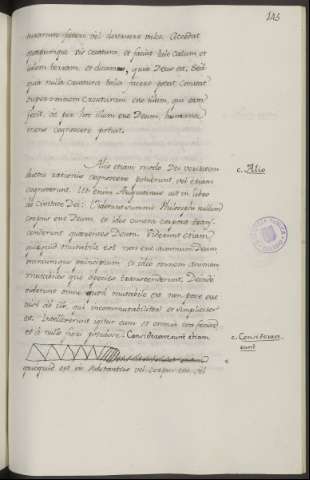 145
quarum formam vel destruere talia. Accedat
quæcumque vis creatura, et faciat tale Cœlum et
talem terram, et dicam, quia Deus est. Sed
quia nulla creatura talia facere potest, Constat
super omnem Creaturam esse illum, qui eam
fecit, ac per hoc illum esse Deum, humana
mens cognoscere potuit.
Alio etiam modo Dei veritatem c. Alio
ductu rationis cognoscere potuerunt, vel etiam
cognoverunt. Ut enim Augustinus ait in libro
de Civitate Dei: Viderunt summi Philosophi nullum
corpus esse Deum, et ideo cuncta corpora trans-
cenderunt quærentes Deum. Viderunt etiam
quidquid mutabile est non esse summum Deum
omniumque principium et ideo omnem animam
mutabilesque spiritus transcenderunt. Deinde
viderunt omne quod mutabile est non posse esse
nisi ab illo, qui incommutabiliter et simpliciter
est. Intellexerunt igitur eum et omnia ista fecisse
et à nullo fieri potuisse. Consideraverunt etiam c. Considerave
runt
quicquid est in substantiis vel corpus esse, vel